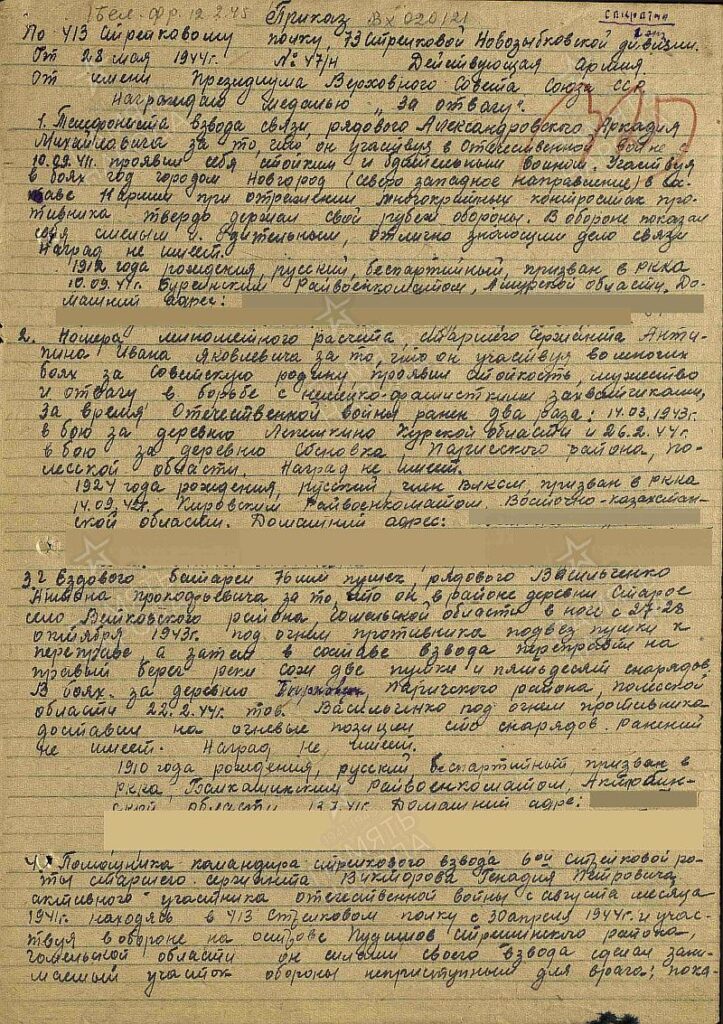 1 Бел. фр. 12.2.45
Приказ ВХ 020121
По 413 стрелковому полку, 73 Стрелковой Новозыбковской дивизии.
От 28 мая 1944г. № 47/н Действующая Армия
От имени Президиума Верховного Совета Союза ССР
Награждаю медалью „За отвагу".
1. Телефониста взвода связи, рядового Александровского Аркадия
Михайловича за то, что он участвуя в Отечественной войне с
10.09.41г. проявил себя стойким и бдительным воином. Участвуя
в боях под городом Новгород (северо западное направление) в со-
ставе 11 армии при отражении многократных контратак про-
тивника твердо держал свой рубеж обороны. В обороне показал
себя смелым и бдительным, отлично знающим дело связи
Наград не имеет.
1912 года рождения, русский, беспартийный, призван в РККА
10.09.41г. Буреинским Райвоенкоматом, Амурской области. До-
машний адрес:
2. Номера минометного расчета, старшего сержанта Анти-
пина Ивана Яковлевича за то, что он участвуя во многих
боях за Советскую родину, проявил стойкость, мужество
и отвагу в борьбе с немецко-фашисткими захватчиками,
За время Отечественной войны ранен два раза: 14.03.1943г.
в бою за деревню Курской области и 26.2.44г.
в бою за деревню Сосновка Паричского района, По-
лесской области. Наград не имеет.
1924 года рождения, русский, член ВЛКСМ, призван в РККА
14.09.42г. Кировским Райвоенкоматом, Восточно-казахстан-
ской области. Домашний адрес:
3. Ездового батареи 76 мм пушек, рядового Васильченко
Прокофьевича за то, что он в районе деревни Старое
село, Ветковского района, Гомельской области в ночь с 27-28
октября 1943г. под огнем противника подвез пушки к
переправе, а затем в составе взвода переправил на
правый берег реки Сож две пушки и пятьдесят снарядов.
В боях за деревню Паричского района, Полесской
области 22.2.44г. тов. Васильченко под огнем противника
доставил на огневые позиции сто снарядов. Ранений
не имеет. Наград не имеет.
1910 года рождения, русский беспартийный, призван в
РККА, Райвоенкоматом,
ской области 12.7.41г. Домашний адрес:
4. Помощника командира стрелкового взвода 6ой стрелковой ро-
ты старшего сержанта Викторова Генадия Петровича,
активного участника отечественной войны с августа месяца
1941г. находясь в 413 Стрелковом полку с 30 апреля 1944г. и учас-
твуя в обороне на острове Стрешинского района,
гомельской области он силами своего взвода сделал зани-
маемый участок обороны неприступным для врага; пока-